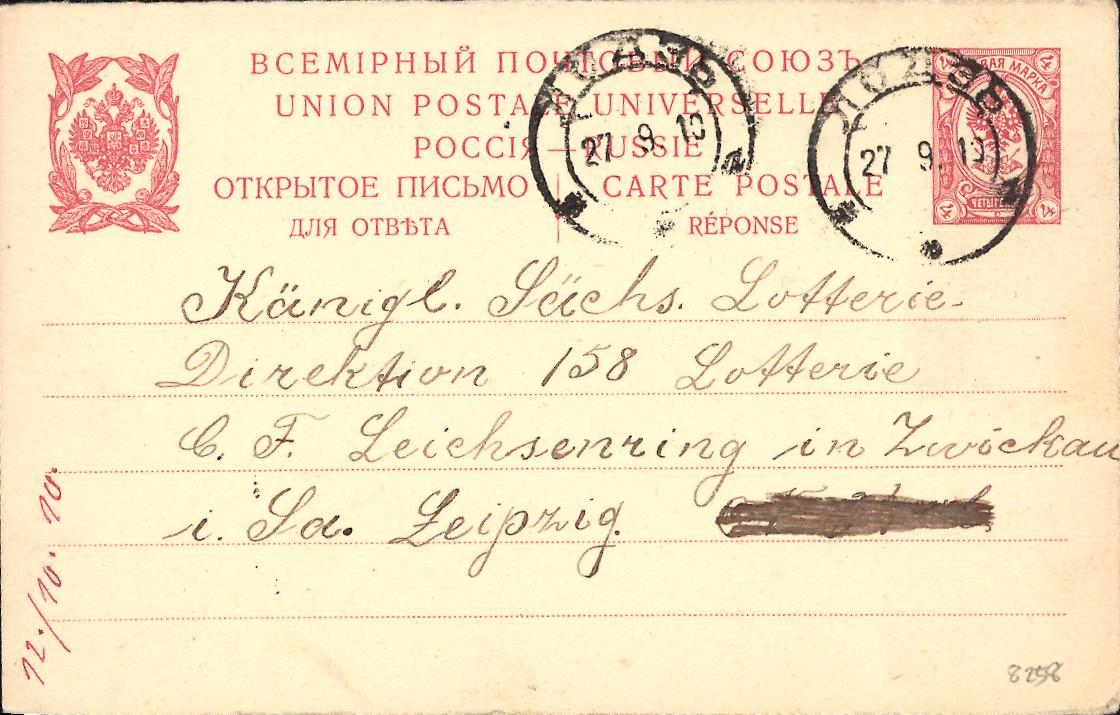 ВСЕМІРНЫЙ ПОЧТОВЫЙ СОЮЗЪ
UNION POSTALE UNIVERSELLE
РОССІЯ—RUSSIE
ОТКРЫТОЕ ПИСЬМО
CARTE POSTALE
ДЛЯ ОТВѢТА
RÉPONSE
ЛОДЗЬ
27 9 10
ЛОДЗЬ
27 9 10
МАРКА
4
Känigl. Sächs. Lotterie-
Direktion 158 Lotterie
C. F. Leichsenring in Zwickau
i. Sa. Leipzig.
12./10. 10.
8258